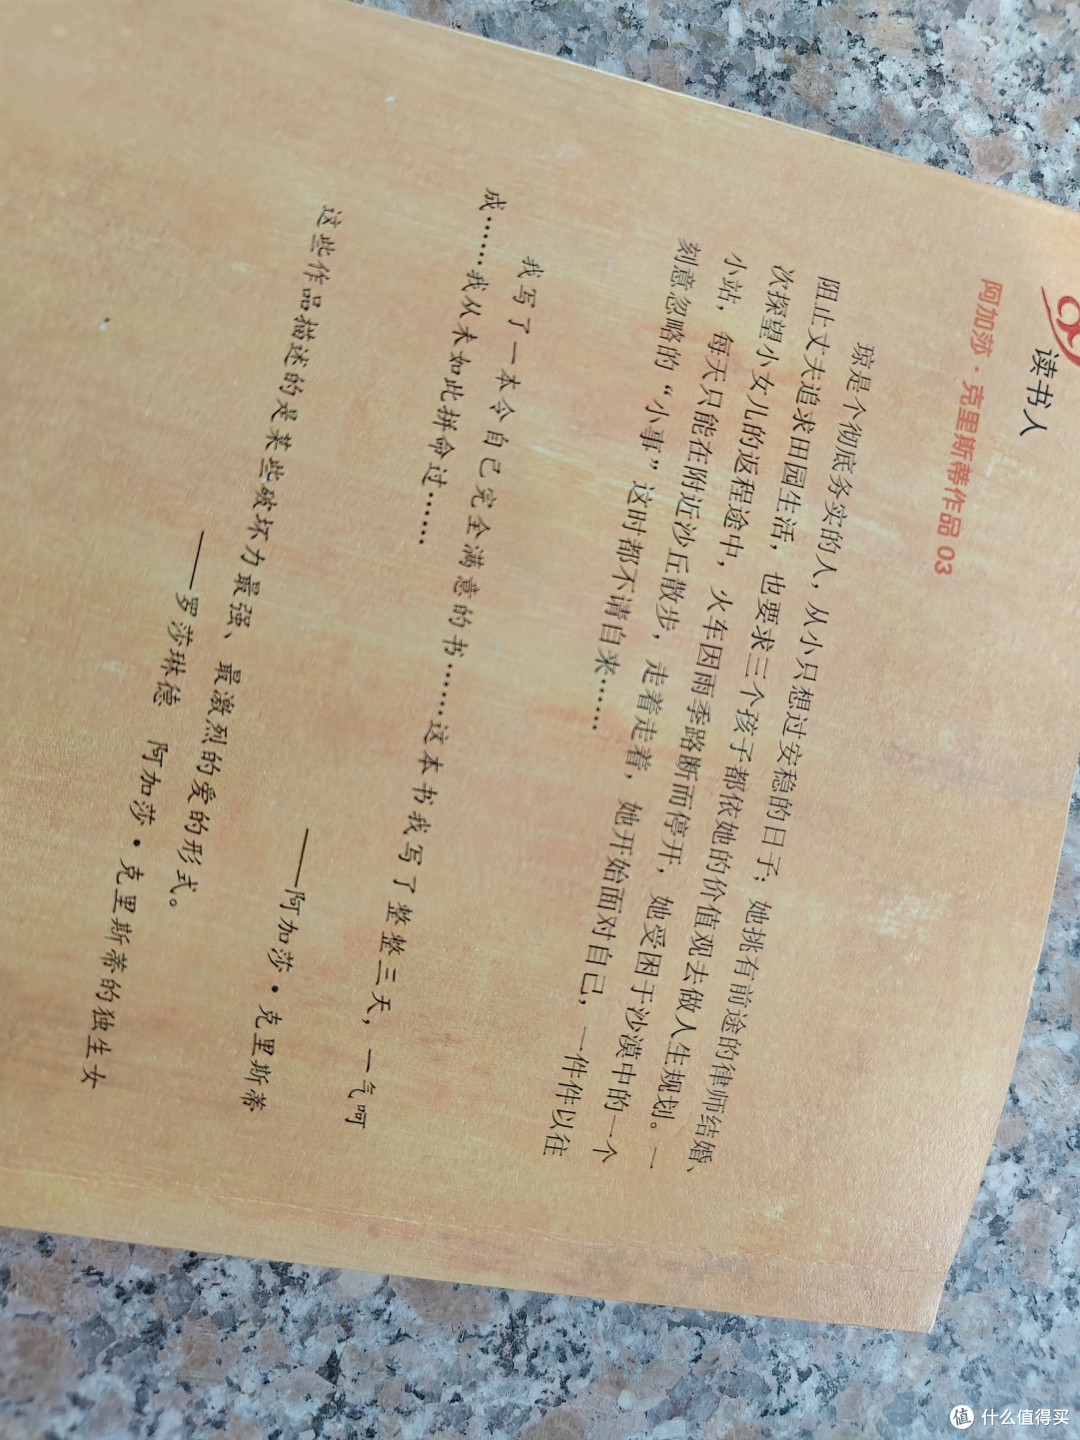 读书人
阿加莎·克里斯蒂作品 03
琼是个彻底务实的人，从小只想过安稳的日子；她挑有前途的律师结婚、
阻止丈夫追求田园生活，也要求三个孩子都依她的价值观去做人生规划。一
次探望小女儿的返程途中，火车因雨季路断而停开，她受困于沙漠中的一个
小站，每天只能在附近沙丘散步，走着走着，她开始面对自己，一件件以往
刻意忽略的“小事”这时都不请自来……
我写了一本令自己完全满意的书……这本书我写了整整三天，一气呵
成……我从未如此拼命过……
——阿加莎·克里斯蒂
这些作品描述的是某些破坏力最强、最激烈的爱的形式。
——罗莎琳德 阿加莎·克里斯蒂的独生女
值 什么值得买